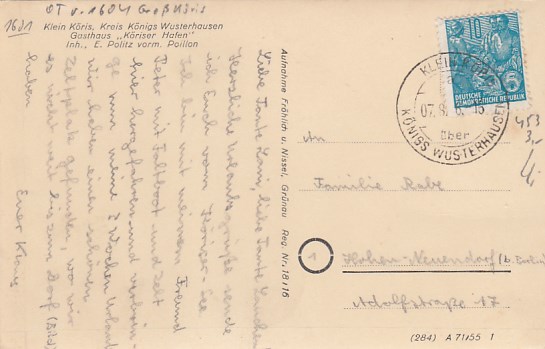 1631
OT v. 1604 Großköris
Klein Köris, Kreis Königs Wusterhausen
Gasthaus „Köriser Hafen"
Inh., E. Politz vorm. Poilion
Liebe Tante Käri, liebe Tante
Herzliche Urlaubsgrüße sende
ich Euch vom Köriser-See
Ich bin mit meinem Freund
Peter mit Faltboot und Zelt
hier hergefahren und verbrin-
ge nun meine 3 Wochen Urlaub
Wir haben einen schönen
Zeltplatz gefunden, wo wir
es nicht weit bis zum Dorf (Bild)
haben
Euer Klaus
Aufnahme Fröhlich u. Nissel, Grünau Reg. Nr. 18/16
KLEIN KÖRIS
07.8.
über
KÖNIGS WUSTERHAUSEN
DEUTSCHE
DEMOKRATISCHE REPUBLIK
5
453
3,-
An
Familie Rabe
Hohen-Neuendorf (b. Berlin)
Adolfstraße 17
(284) A 71/55 1